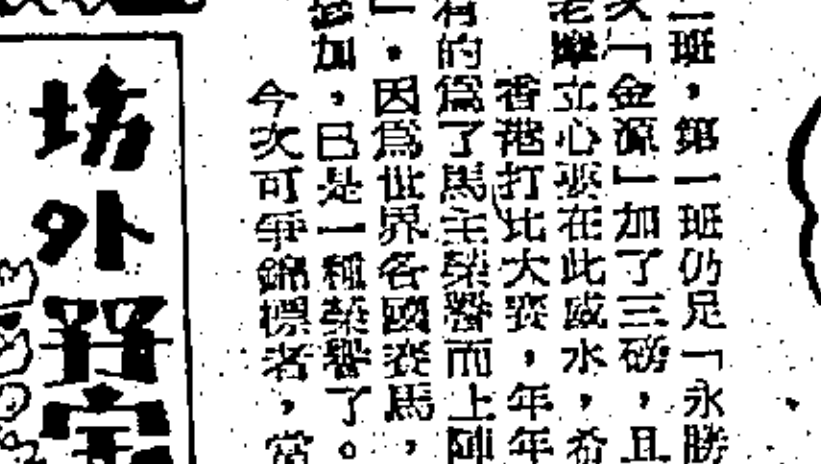 二班，第一班仍是「永勝
次「金源」加了三磅，且
老摩立心要在此威水，希
香港打比大賽，年年
有的爲了馬主榮譽而上陣
」，因爲世界各國賽馬，
參加，已是一種榮譽了。
今次可爭錦標者，當
塲外